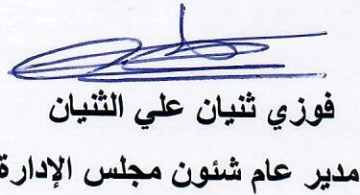 فوزي ثنيان علي الثنيان
مدير عام شئون مجلس الإدارة